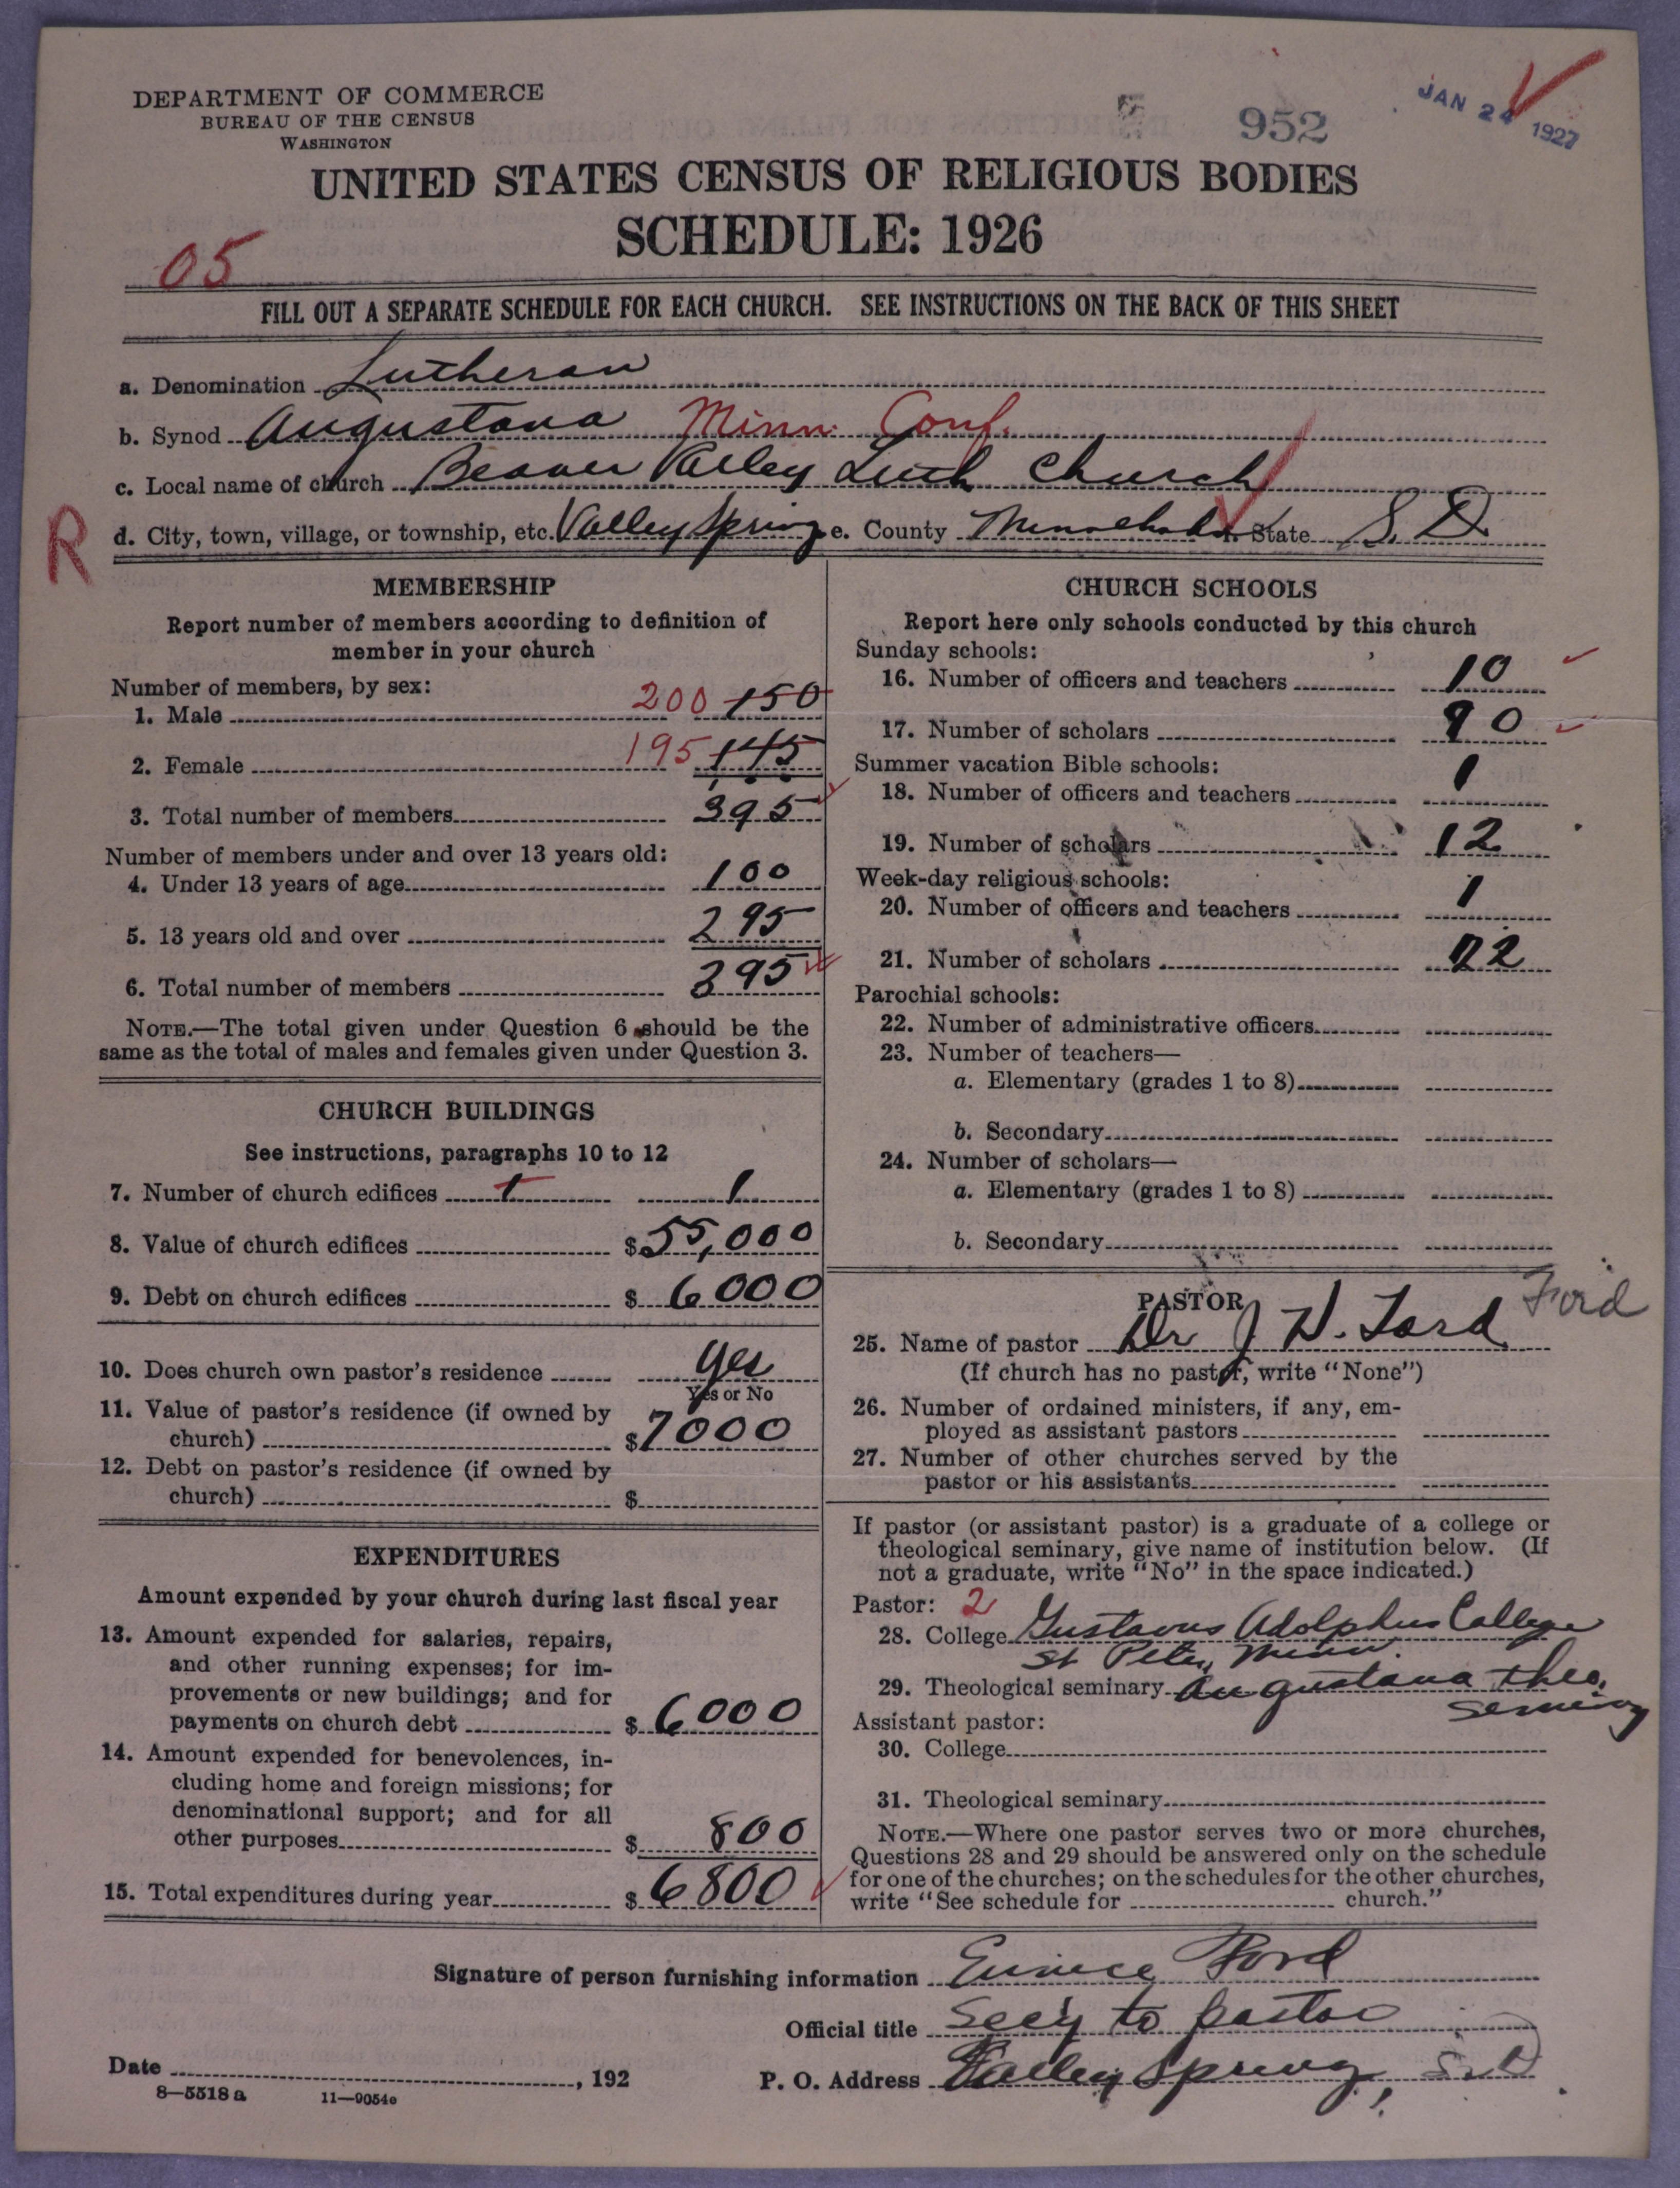 DEPARTMENT OF COMMERCE
BUREAU OF THE CENSUS
WASHINGTON
952
JAN 24 1927
UNITED STATES CENSUS OF RELIGIOUS BODIES
SCHEDULE: 1926
05
FILL OUT A SEPARATE SCHEDULE FOR EACH CHURCH. SEE INSTRUCTIONS ON THE BACK OF THIS SHEET
a. Denomination Lutheran
b. Synod Augustana Minn. Conf.
c. Local name of church Beaver Valley Luth Church
R
d. City, town, village, or township, etc. Valley Spring e. County Minnehaha f. State S. D.
MEMBERSHIP
Report number of members according to definition of
member in your church
Number of members, by sex:
1. Male 200 150
2. Female 195 145
3. Total number of members 395
Number of members under and over 13 years old:
4. Under 13 years of age 100
5. 13 years old and over 295
6. Total number of members 395
NOTE.—The total given under Question 6 should be the
same as the total of males and females given under Question 3.
CHURCH BUILDINGS
See instructions, paragraphs 10 to 12
7. Number of church edifices 1 1
8. Value of church edifices $55,000
9. Debt on church edifices $6000
10. Does church own pastor's residence Yes
Yes or No
11. Value of pastor's residence (if owned by
church) $7000
12. Debt on pastor's residence (if owned by
church) $
EXPENDITURES
Amount expended by your church during last fiscal year
13. Amount expended for salaries, repairs,
and other running expenses; for im-
provements or new buildings; and for
payments on church debt $6000
14. Amount expended for benevolences, in-
cluding home and foreign missions; for
denominational support; and for all
other purposes $800
15. Total expenditures during year $6800
CHURCH SCHOOLS
Report here only schools conducted by this church
Sunday schools:
16. Number of officers and teachers 10
17. Number of scholars 90
Summer vacation Bible schools:
18. Number of officers and teachers 1
19. Number of scholars 12
Week-day religious schools:
20. Number of officers and teachers 1
21. Number of scholars 22
Parochial schools:
22. Number of administrative officers
23. Number of teachers—
a. Elementary (grades 1 to 8)
b. Secondary
24. Number of scholars—
a. Elementary (grades 1 to 8)
b. Secondary
PASTOR
25. Name of pastor Dr J W. Ford Ford
(If church has no pastor, write "None")
26. Number of ordained ministers, if any, em-
ployed as assistant pastors
27. Number of other churches served by the
pastor or his assistants
If pastor (or assistant pastor) is a graduate of a college or
theological seminary, give name of institution below. (If
not a graduate, write "No" in the space indicated.)
Pastor: 2
28. College Gustavus Adolphus College
St Peter, Minn.
29. Theological seminary Augustana Theo.
Seminary
Assistant pastor:
30. College
31. Theological seminary
NOTE.—Where one pastor serves two or more churches,
Questions 28 and 29 should be answered only on the schedule
for one of the churches; on the schedules for the other churches,
write "See schedule for church."
Signature of person furnishing information Eunice Ford
Official title Sec'y to pastor
Date , 192
P. O. Address Valley Spring, S. D
8—5518 a 11—9054e